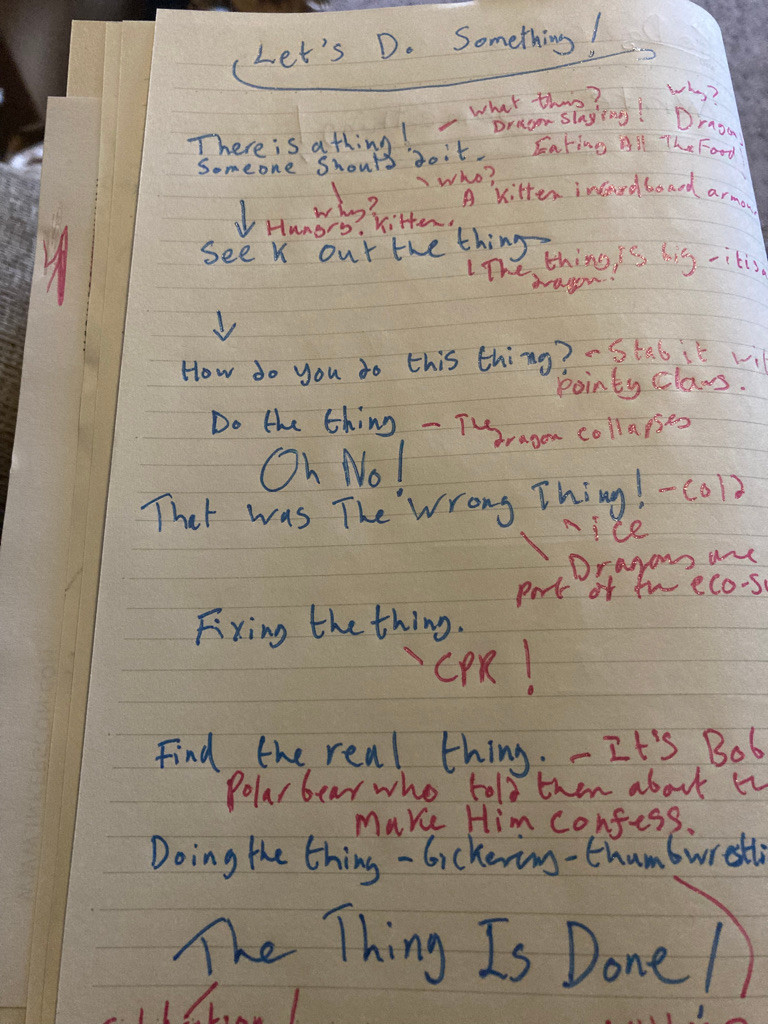 Let's Do Something!
what thing? why?
There is a thing! - Dragon Slaying! Dragon
Someone Should do it. Eating All The Food
who?
A Kitten in cardboard armou
why?
Hungry. Kitten.
Seek out the thing
The thing is big - it is a
dragon.
How do you do this thing? - Stab it wit
pointy Claws.
Do the thing - The
dragon collapses
Oh No!
That was The Wrong Thing! - cold
ice
Dragons are
part of the eco-s
Fixing the thing.
CPR!
Find the real thing. - It's Bob
Polar bear who told them about th
Make Him Confess.
Doing the thing - bickering - thumbwrestli
The Thing Is Done!